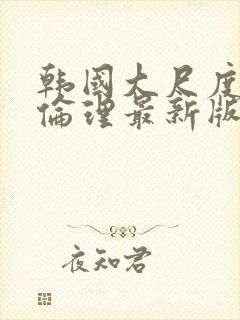 韩国大尺度
倫理最新版
夜知君